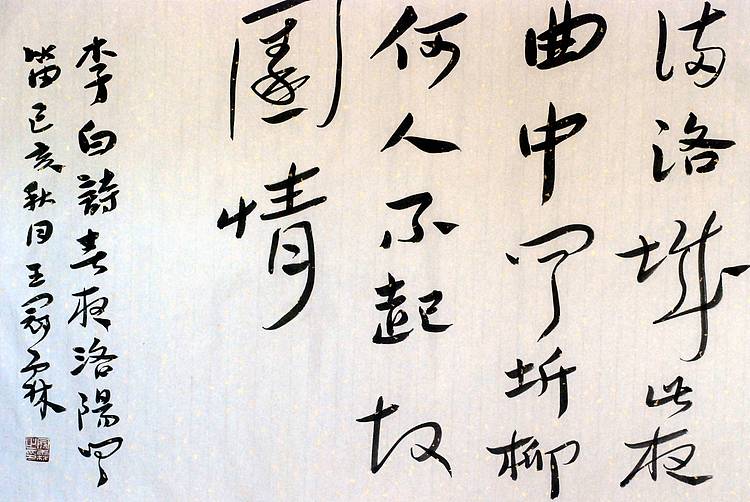 滿洛城此夜
曲中闻折柳
何人不起故
園情
李白詩春夜洛陽闻
笛己亥秋月王霖